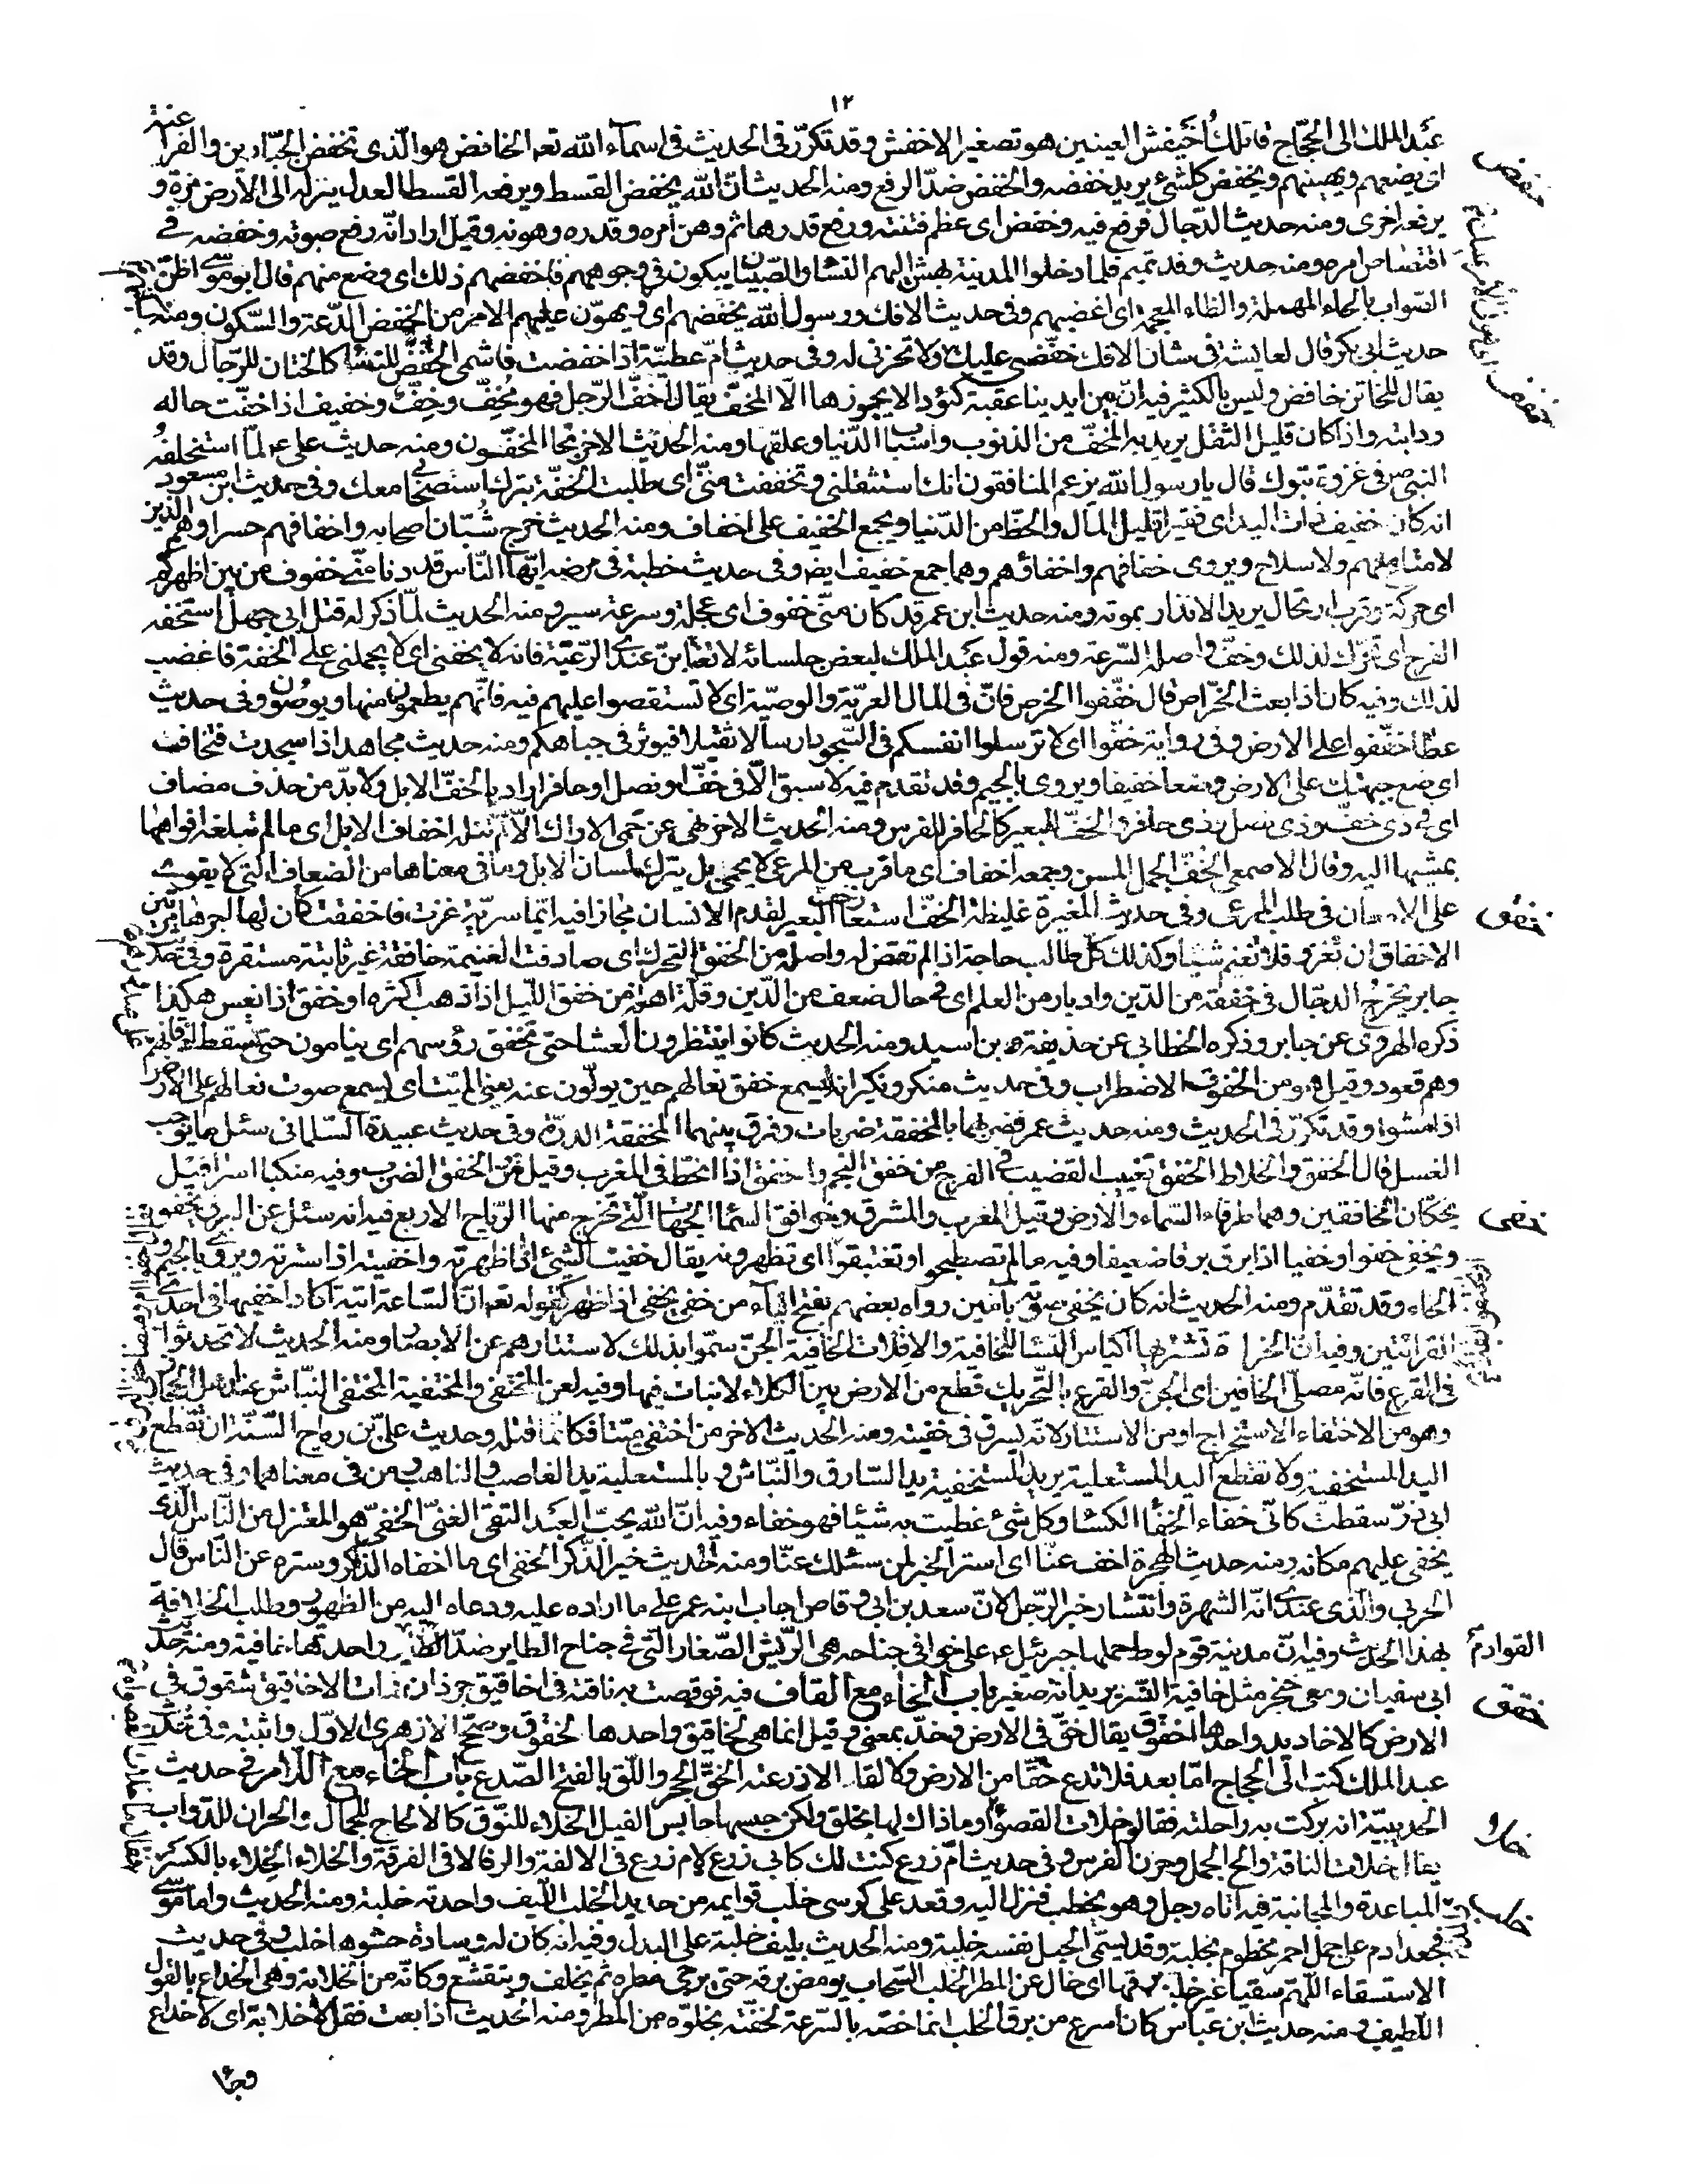 ١٢
عبد الملك الى الحجّاج قاتلك اُخَيفش العينين هو تصغير الاخفش وقد تكرّر فى الحديث فى اسمآء الله تعه الخافض هو الّذى يخفض الجبّارين والفراعنة
خفض
اى يضعهم ويهينهم ويخفض كلّ شئ يريد خفضه والخفض ضدّ الرفع ومنه الحديث انّ الله يخفض القسط ويرفعه القسط العدل ينزله الى الارض مرة و
يرفعه اخرى ومنه حديث الدّجال فرفع فيه وخفض اى عظم فتنته ورفع قدرها ثم وهن امره وقدره وهونه وقيل اراد انّه رفع صوته وخفضه فى
اقتصاص امره ومنه حديث وفد تميم فلما دخلوا المدينة بهش اليهم النسا والصّبيان يبكون فى وجوههم فاخفضهم ذلك اى وضع منهم قال ابو موسى اظنّ
الصّواب بالحاء المهملة والظاء المعجمة اى اغضبهم وفى حديث الافك ورسول الله يخفضهم اى يهوّن عليهم الامر من الخفض الدّعة والسّكون ومنه
حديث ابى بكر قال لعايشة فى شان الافك خفّضى عليك ولا تحزنى له وفى حديث امّ عطيّة اذا خفضت فاشمى الخفض للنسا كالختان للرّجال وقد
خفف
يقال للخاتن خافض وليس بالكثير فيه انّ بين ايدينا عقبة كئودا لا يجوزها الّا المخفّ يقال اخفّ الرّجل فهو مُخِفّ وخِفّ وخفيف اذا خفّت حاله
ودابته واذا كان قليل الثقل يريد به المخفّ من الذنوب واسباب الدّنيا وعلقها ومنه الحديث الاخر نجا المخفّون ومنه حديث على عه لمّا استخلفه
النبى ص فى غزوة تبوك قال يا رسول الله يزعم المنافقون انك استثقلتنى وتخففت منّى اى طلبت الخفّة بترك استصحابى معك وفى حديث ابن مسعود
انه كان خفيف ذات اليد اى فقيرا قليل المال والحظّ من الدّنيا ويجمع الخفيف على اخفاف ومنه الحديث خرج شُبّان اصحابه واخفافهم حسرا وهم الذين
لا متاع لهم ولا سلاح ويروى خفافهم واخفاؤهم وهما جمع خفيف ايض وفى حديث خطبة فى مرضه ايّها النّاس قد دنا منّى خفوف من بين اظهركم
اى حركة وقرب ارتحال يريد الانذار بموته ومنه حديث ابن عمر قد كان منّى خفوف اى عجلة وسرعة سير ومنه الحديث لمّا ذكر له قتل ابى جهل استخفه
الفرح اى تحرّك لذلك وخفّ واصله السّرعة ومنه قول عبد الملك لبعض جلسائه لا تغتابنّ عندى الرّعيّة فانه لا يخفنى اى لا يحملنى على الخفة فاغضب
لذلك وفيه كان اذا بعث الخرّاص قال خفّفوا الخرص فانّ فى المال العريّة والوصيّة اى لا تستقصوا عليهم فيه فانّهم يطعمون منها ويوصُون وفى حديث
عطا خفّفوا على الارض وفى رواية خفّوا اى لا ترسلوا انفسكم فى السّجود ارسالا ثقيلا فيوثر فى جباهكم ومنه حديث مجاهد اذا سجدت فتخافّ
اى ضع جبهتك على الارض وضعا خفيفا ويروى بالجيم وقد تقدم فيه لا سبق الّا فى خفّ او نصل او حافر اراد بالخفّ الابل ولا بدّ من حذف مضاف
اى فى ذى خفّ وذى نصل وذى حافر والخفّ للبعير كالحافر للفرس ومنه الحديث الاخر نهى عن حمى الاراك الّا ما لم تنله اخفاف الابل اى ما لم تبلغه افواهها
بمشيها اليه وقال الاصمعى الخُفّ الجمل المسن وجمعه اخفاف اى ما قرب من المرعى لا يحمى بل يترك لمسان الابل وما فى معناها من الضعاف التى لا يقوى
خفق
على الامعان فى طلب المرعى وفى حديث المغيرة غليظة الخفّ استعار خفّ البعير لقدم الانسان مجازا فيه ايّما سريّة غزت فاخفقت كان لها اجرها مرّتين
الاخفاق ان تغزو فلا تغنم شيئا وكذلك كلّ طالب حاجة اذا لم تقض له واصله من الخفق التحرك اى صادفت الغنيمة خافقة غير ثابتة مستقرة وفى حديث
جابر يخرجُ الدجّال فى خفقة من الدّين وادبار من العلم اى فى حال ضعف من الدّين وقلّة اهله من خفق اللّيل اذا ذهب اكثره او خفق اذا نعس هكذا
ذكره الهروى عن جابر وذكره الخطابى عن حذيفة بن اسيد ومنه الحديث كانوا ينتظرون العشا حتى تخفق رؤسهم اى ينامون حتى تسقط اذقانهم
وهم قعود وقيل هو من الخفوق الاضطراب وفى حديث منكر ونكير انه ليسمع خفق نعالهم حين يولّون عنه يعنى الميّت اى يسمع صوت نعالهم على الارض
اذا مشوا وقد تكرّر فى الحديث ومنه حديث عمر فضربهما بالمخفقة ضربات وفرق بينهما المخفقة الدرّة وفى حديث عبيدة السّلمانى سئل ما يوجب
الغسل قال الخفق والخلاط الخفق تغييب القضيب فى الفرج من خفق النجم واخفق اذا انحطّ فى المغرب وقيل هو من الخفق الضرب وفيه منكبا اسرافيل
خفى
يحكّان الخافقين وهما طرفا السّماء والارض وقيل المغرب والمشرق وخوافق السّما الجهات الّتى تخرج منها الرّياح الاربع فيه انه سئل عن البرق يخفو
ويخفى خفوا وخفيا اذا برق برقا ضعيفا وفيه ما لم تصطبحوا او تغتبقوا اى تظهرونه يقال خفيت الشئ اذا اظهرته واخفيته اذا استرته ويروى بالجيم
الحاء وقد تقدّم ومنه الحديث انه كان يخفى صوته بآمين رواه بعضهم بفتح اليآء من خفى يخفى اذا ظهر كقوله تعه انّ السّاعة اتية اكاد اخفيها فى احدى
القرائتين وفيه انّ الحزاءة تشتريها اكياس النسا للخافية والاقلات الخافية الجنّ سمّوا بذلك لاستتارهم عن الابصار ومنه الحديث لا تحدثوا
فى القرع فانّه مصلّى الخافين اى الجنّ والقرع بالتّحريك قطع من الارض بين الكلاء لا نبات فيها وفيه لعن المختفى والمختفية المختفى النبّاش عند اهل الحجاز
وهو من الاختفاء الاستخراج او من الاستتار لانّه يسرق فى خفيته ومنه الحديث الاخر من اختفى ميّتا فكانّما قتله وحديث علىّ بن رباح السّنّة ان تقطع
اليد المستخفية ولا تقطع اليد المستعلية يريد بالمستخفية يد السّارق والنبّاش وبالمستعلية يد الغاصب والناهب ومن فى معناهما وفى حديث
ابى ذرّ سقطت كانّى خفاء الخفآ الكسا وكلّ شئ غطيت به شيئا فهو خفاء وفيه انّ الله يحبّ العَبد التقى الغنىّ الخفىّ هو المعتزل من النّاس الّذى
يخفى عليهم مكانه ومنه حديث الهجرة اخف عنّا اى استر الخبر لمن سئلك عنّا ومنه الحديث خير الذّكر الخفى اى ما اخفاه الذّاكر وستره عن النّاس قال
الحربى والّذى عندى انّه الشهرة وانتشار خبر الرّجل لانّ سعد بن ابى وقاص اجاب ابنه عمر على ما اراده عليه ودعاه اليه من الظهور وطلب الخلافة
القوادم
بهذا الحديث وفيه انّ مدينة قوم لوط حملها جبرئيل عه على خوافى جناحه هى الرّيش الصّغار الّتى فى جناح الطاير ضدّ واحدتها خافية ومنه حديث
خقق
ابى سفيان ومعى خنجر مثل خافية النّسر يريد انّه صغير باب الخاء مع القاف فيه فوقصت به ناقته فى اخاقيق جرذان فمات الاخاقيق شقوق فى
الارض كالاخاديد واحدها اخقوق يقال خقّ فى الارض وخدّ بمعنى وقيل انما هى لخاقيق واحدها لخقوق وصحّح الازهرى الاوّل واثبته وفى حديث
عبد الملك كتب الى الحجاج امّا بعد فلا تدع خقّا من الارض ولا لقّا الا زرعته الخقّ الجحر واللّق بالفتح الصّدع باب الخاء مع اللّام فى حديث
خلاء
الحديبيّة انه بركت به راحلته فقالوا خلات القصوآ وما ذاك لها بخلق ولكن حبسها حابس الفيل الخلاء للنّوق كالالحاح للجمال والحران للدّواب
يقال خلات الناقة والحّ الجمل وحرن الفرس وفى حديث امّ زرع كنت لك كابى زرع لام زرع فى الالفة والرفا لا فى الفرقة والخلاء الخِلاء بالكسر
خلب
المباعدة والمجانبة فيه اتاه رجل وهو يخطب فنزل اليه وقعد على كرسى خلب قوايمه من حديد الخلب اللّيف واحدته خلبة ومنه الحديث وامّا موسى
فجعد ادم على جمل احمر مخطوم بخلبة وقد يسمّى الحبل نفسه خلبة ومنه الحديث بليف خلبة على البدل وفيه انّه كان له وسادة حشوها خلب وفى حديث
الاستسقاء اللّهمّ سقيا غير خلّب برقها اى خال عن المطر الخلب السّحاب يومض برقه حتى يرجى مطره ثم يخلف ويتقشع وكانّه من الخلابة وهى الخداع بالقول
اللّطيف ومنه حديث ابن عباس كان اسرع من برق الخلب انما خصّه بالسّرعة لخفّته بخلوّه من المطر ومنه الحديث اذا بعت فقل لا خلابة اى لا خداع
وجآ